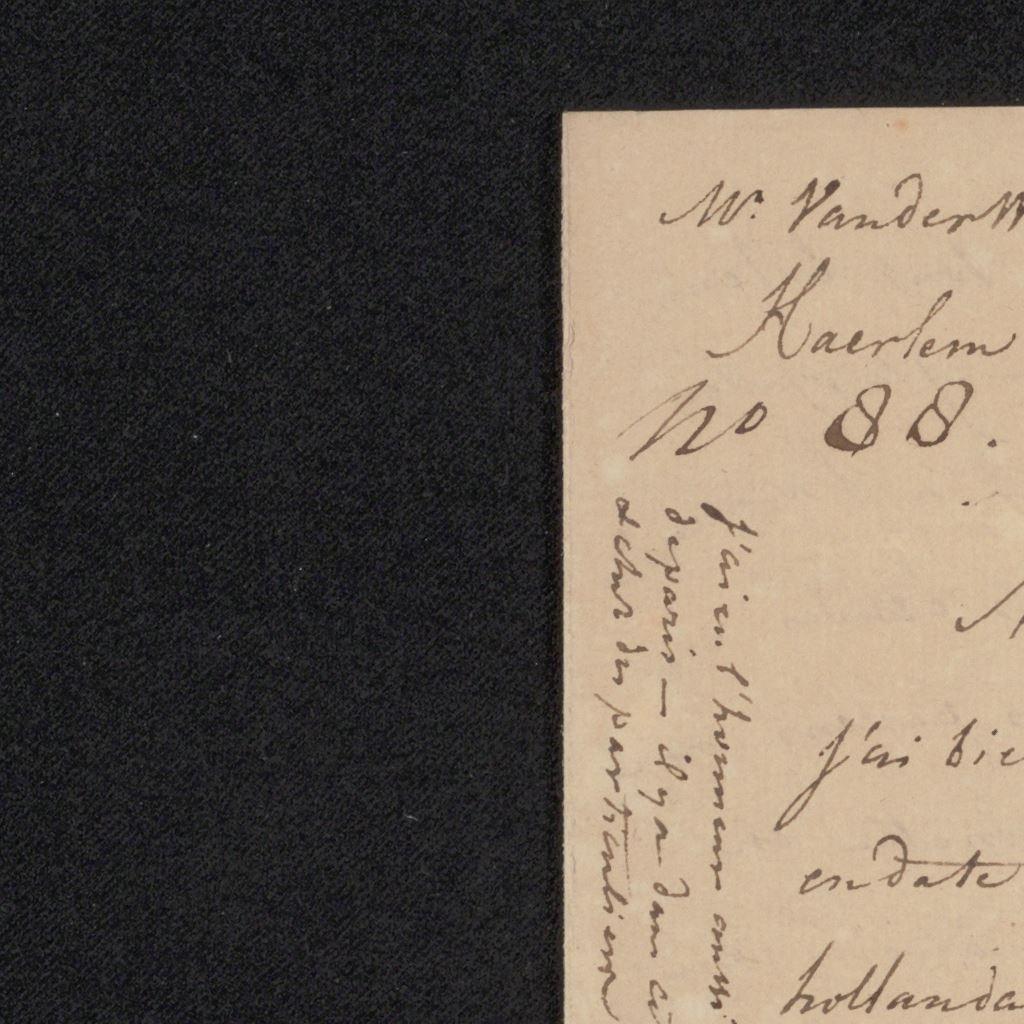 Mr. VanderW
Haerlem
no 88.
J'ai bie
en date
hollanda
J'ai eu l'honneur aussi
de paris — il y a dans ce
des particuliers